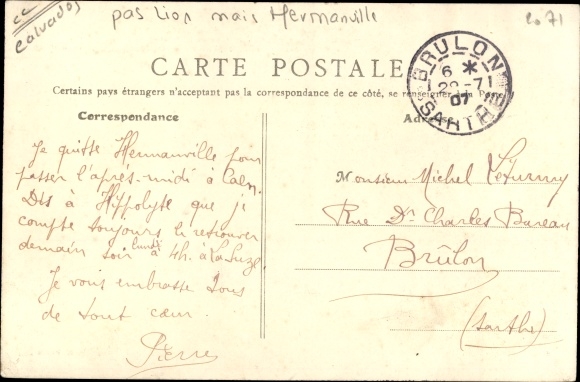 cc
calvados
pas Lion mais Hermanville
CARTE POSTALE
Certains pays étrangers n'acceptant pas la correspondance de ce côté, se renseigner à la Poste
Correspondance
Je quitte Hermanville pour
passer l'après-midi à Caen.
Dis à Hippolyte que je
compte toujours le retrouver
demain soir lundi à 4h. à La Suze
Je vous embrasse tous
de tout cœur.
Pierre
BRULON
6 *
29 -7
07
SARTHE
Monsieur Michel
Rue Dr Charles Bareau
Brûlon
(Sarthe)